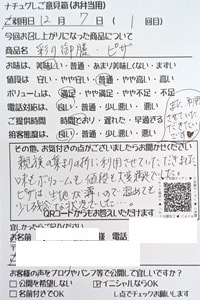 ナチュグレご意見箱(お弁当用)
ご利用日 12月 7日( 1 回目)
今回お召し上がりになった商品について
商品名 彩り御膳・ピザ
お味は… 美味しい・普通・あまり美味しくない・まずい
値段は… 安い・やや安い・普通・やや高い・高い
ボリュームは… 満足・やや満足・普通・やや不満・不満
電話対応は… 良い・少し良い・普通・少し悪い・悪い
ご提供時間… 時間どおり・遅れた・早過ぎる
接客態度は… 良い・少し良い・普通・少し悪い・悪い
また、利用
させて
その他、お気付きの点がございましたらお聞かせください
親族の集まりの時に利用させていただきました。
味もボリュームも値段も大満足でした。
ピザは生地が薄いので温めても
QRコードからもお答えいただけます
宜しかったらご記入ください
お名前 電話
ご住所
お客様の声をブログやパンフ等で公開して宜しいですか?
□公開を希望しない ☑イニシャルならOK
□名前付きでOK し点でチェックお願いします